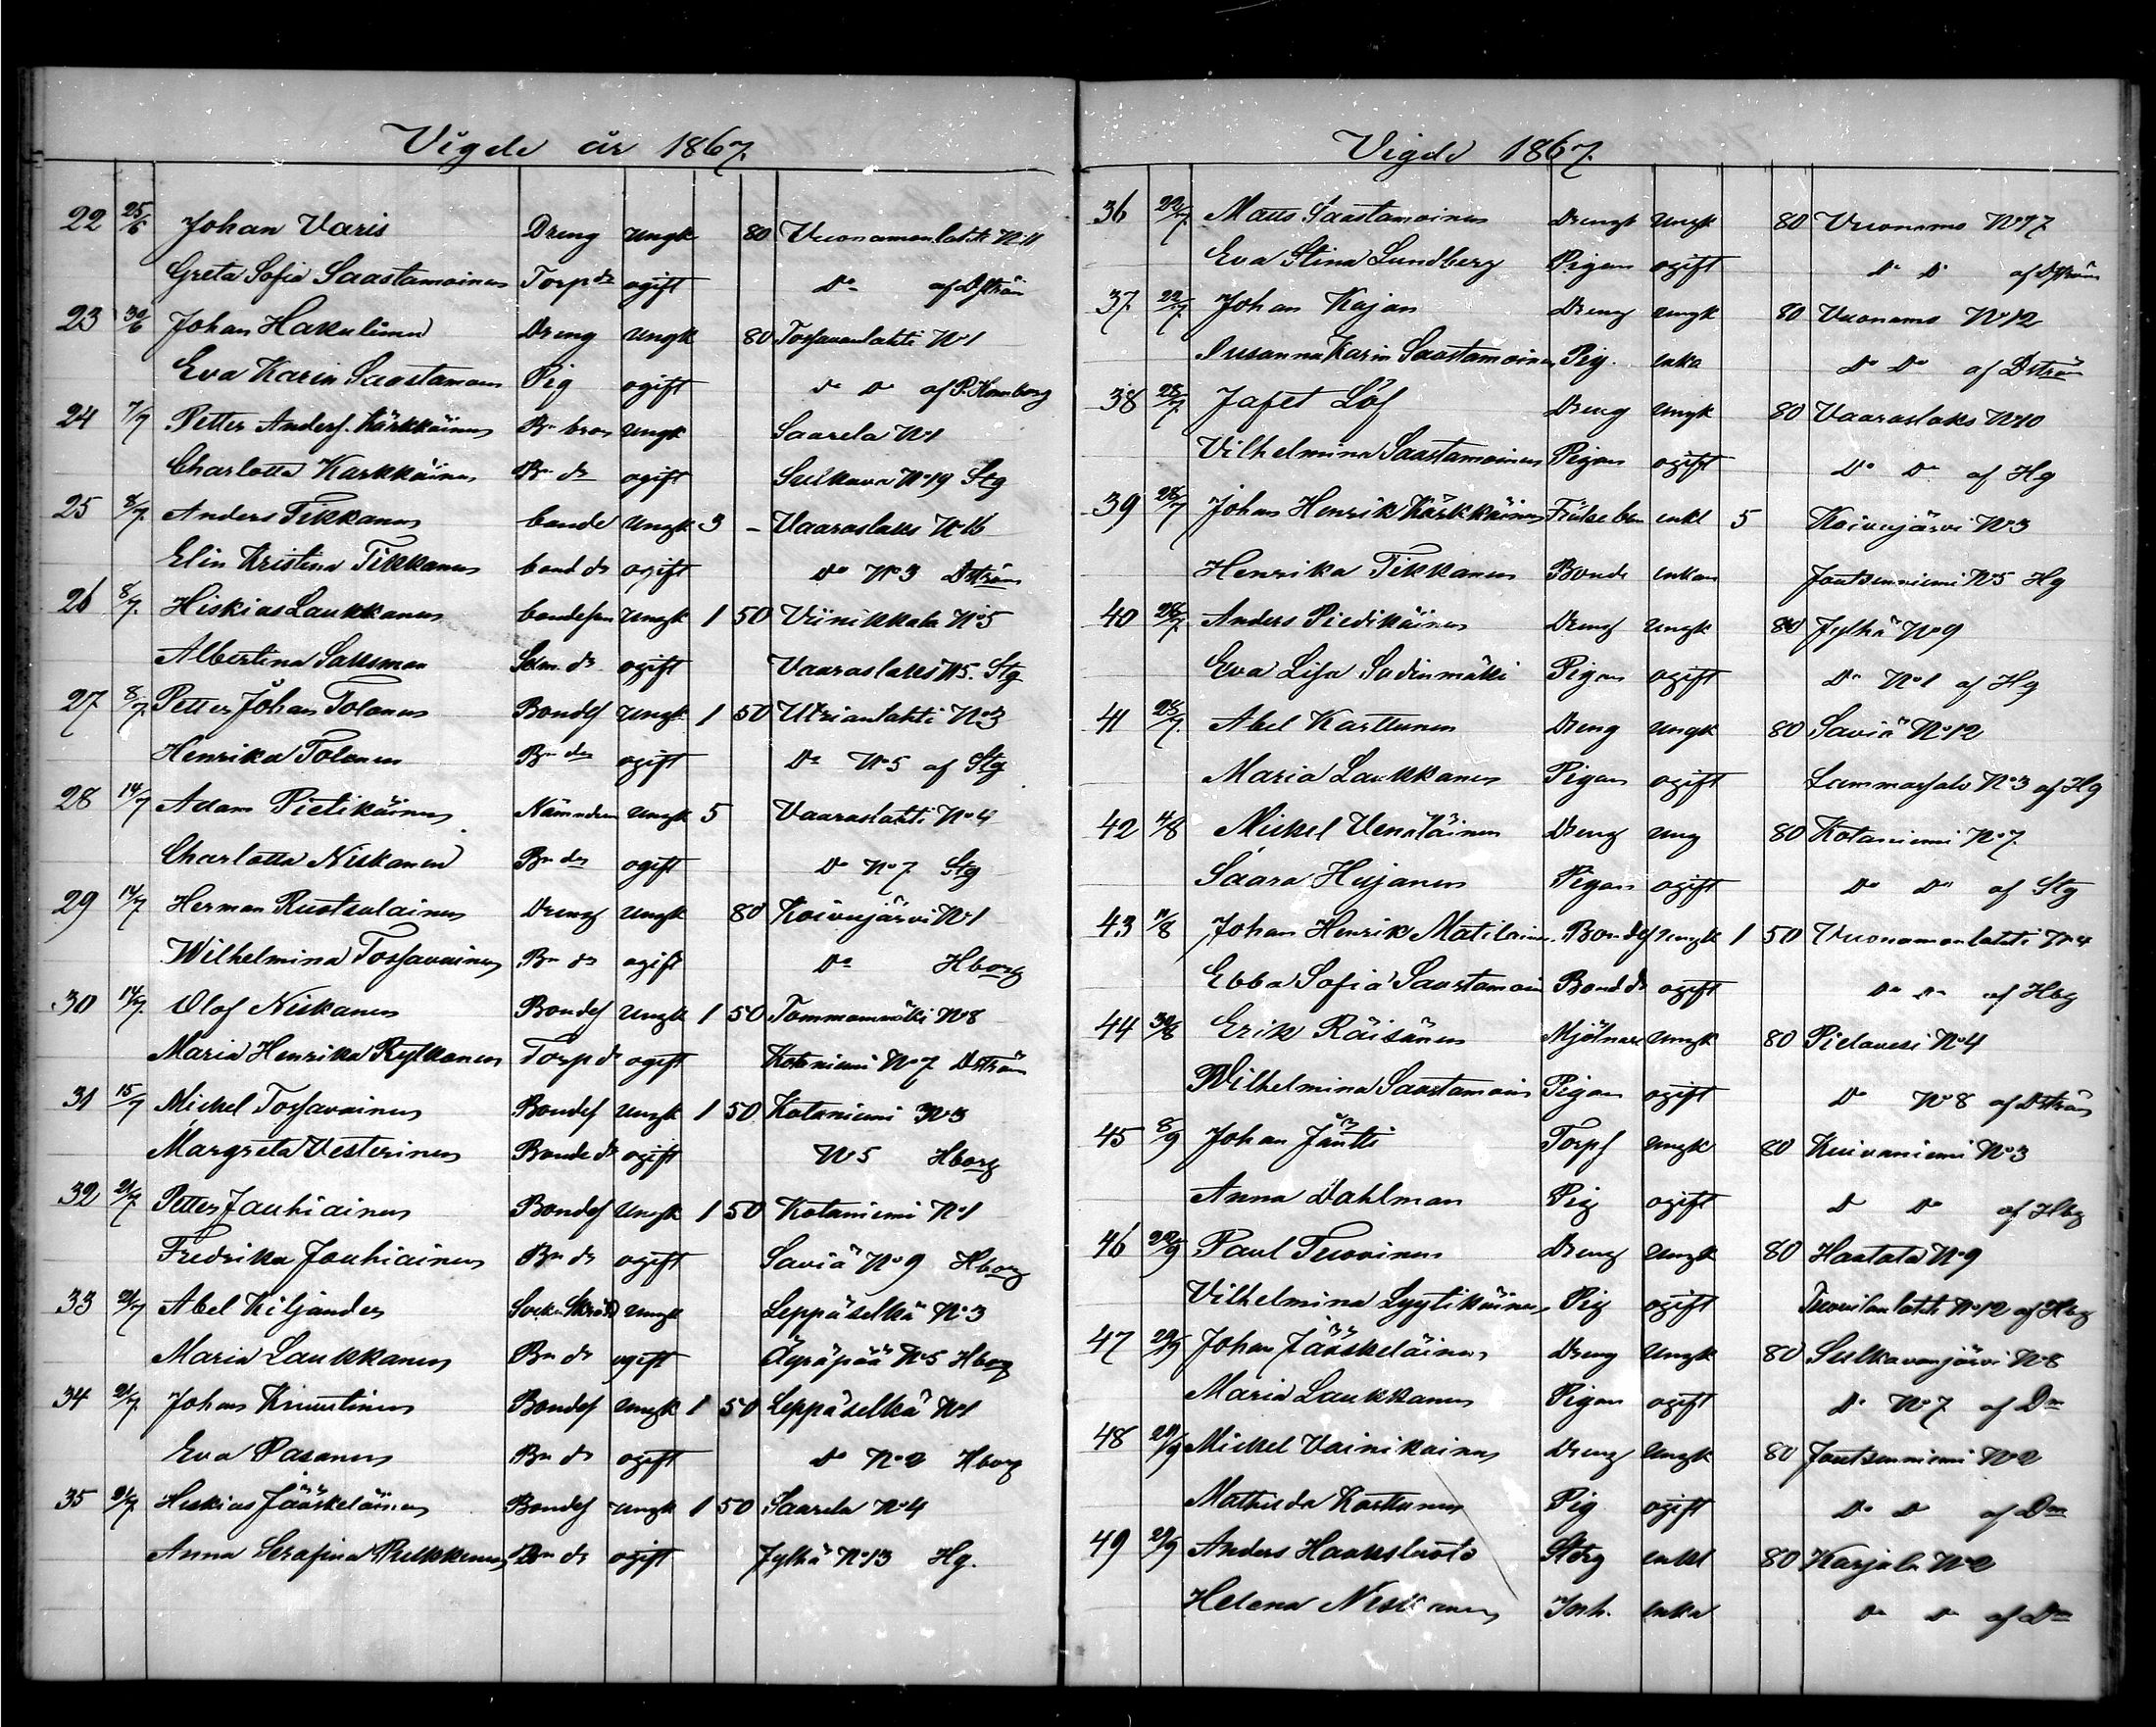 Vigde år 1867.
22 25/6 Johan Varis Dreng ungk 80 Vuonamonlahti No 11
Greta Sofia Saastamoinen Torp dr ogift Do af Dström
23 30/6 Johan Hakulinen Dreng ungk 80 Tossavanlahti No 1
Eva Karin Saastamoin Pig ogift Do Do af P. Hornborg
24 7/7 Petter Anders. Kärkkäinen Bn bror ungk Saarela No 1
Charlotta Karkkäinen Bn dr ogift Sulkava No 19 Stg
25 8/7 Anders Tikkanen bonde ungk 3 - Vaaraslaks No 16
Elin Kristina Tikkanen bond dr ogift Do No 3 Dström
26 8/7. Hiskias Laukkanen bondeson ungk 1 50 Viinikkala No 5
Albertina Saksman Solm. dr ogift Vaaraslaks No 5. Stg
27 8/7. Petter Johan Tolonen Bondes ungk 1 50 Utrianlahti No 3
Henrika Tolonen Bn dr ogift Do No 5 af Stg
28 14/7 Adam Pietikäinen Nämndem ungk 5 Vaaraslahti No 4
Charlotta Niskanen Bn dr ogift Do No 7 Stg
29 14/7 Herman Ruotsalainen Dreng ungk 80 Koivujärvi No 1
Wilhelmina Tossavainen Bn dr ogift Do Hborg
30 14/7. Olof Niskanen Bondes ungk 1 50 Tommonmäki No 8
Maria Henrika Rytkönen Torp dr ogift Kotaniemi No 7 Dström
31 15/7 Mickel Tossavainen Bondes ungk 1 50 Kotaniemi No 3
Margreta Vesterinen Bonde dr ogift No 5 Hborg
32 21/7 Petter Jauhiainen Bondes ungk 1 50 Kotaniemi No 1
Fredrika Jauhiainen Bn dr ogift Saviä No 9 Hborg
33 21/7 Abel Kiljander Socken Skräd ungk Leppäselkä No 3
Maria Laukkanen Bn dr ogift Äyräpää No 5 Hborg
34 21/7. Johan Knuutinen Bondes ungk 1 50 Leppäselkä No 1
Eva Pasanen Bn dr ogift Do No 2 Hborg
35 21/7. Hiskias Jääskeläinen Bondes ungk 1 50 Saarela No 4
Anna Serafina Pulkkinen Bn dr ogift Jylhä No 13 Hg.
Vigde 1867.
36 22/7. Matts Saastamoinen Drengk ungk 80 Vuonamo No 17
Eva Stina Lundberg Pigan ogift Do Do af Dström
37. 22/7. Johan Kajan Dreng ungk 80 Vuonamo No 12
Susanna Karin Saastamoinen Pig. enka Do Do af Dström
38 28/7. Jafet Löf Dreng ungk 80 Vaaraslaks No 10
Vilhelmina Saastamoinen Pigan ogift Do Do af Hg
39 28/7 Johan Henrik Kärkkäinen Frälse bn enkl 5 Koivujärvi No 3
Henrika Tikkanen Bonde enkan Joutsenniemi No 5 Hg
40 28/7. Anders Piedikäinen Dreng ungk 80 Jylhä No 9
Eva Lisa Sadinmäki Pigan ogift Do No 1 af Hg
41 28/7. Abel Karttunen Dreng ungk 80 Saviä No 12
Maria Laukkanen Pigan ogift Lammassalo No 3 af Hg
42 4/8 Mickel Venäläinen Dreng ung 80 Kotaniemi No 7.
Saara Hujanen Pigan ogift Do Do af Stg
43 11/8 Johan Henrik Matilain. Bondes ungk 1 50 Vuonamonlahti No 4
Ebba Sofia Saastamoin Bond dr ogift Do Do af Hbg
44 30/8 Erik Räisänen Mjölnare ungk 80 Pielavesi No 4
Wilhelmina Saastamoin Pigan ogift Do No 8 af Dström
45 8/9 Johan Jäntti Torps ungk 80 Kuivaniemi No 3
Anna Dahlman Pig ogift D Do af Hbg
46 22/9 Paul Tuovinen Dreng ungk 80 Hautala No 9
Vilhelmina Lyytikäinen Pig ogift Tuovilanlahti No 12 af Hbg
47 29/9 Johan Jääskeläinen Dreng ungk 80 Sulkavanjärvi No 8
Maria Laukkanen Pigan ogift Do No 7 af Dm
48 29/9 Mickel Vainikainen Dreng ungk 80 Joutsenniemi No 2
Mathilda Karttunen Pig ogift Do D af Dm
49 29/9 Anders Haaksluoto enkl 80 Karjala No 2
Helena Niskanen Inh. enka Do Do af Dm